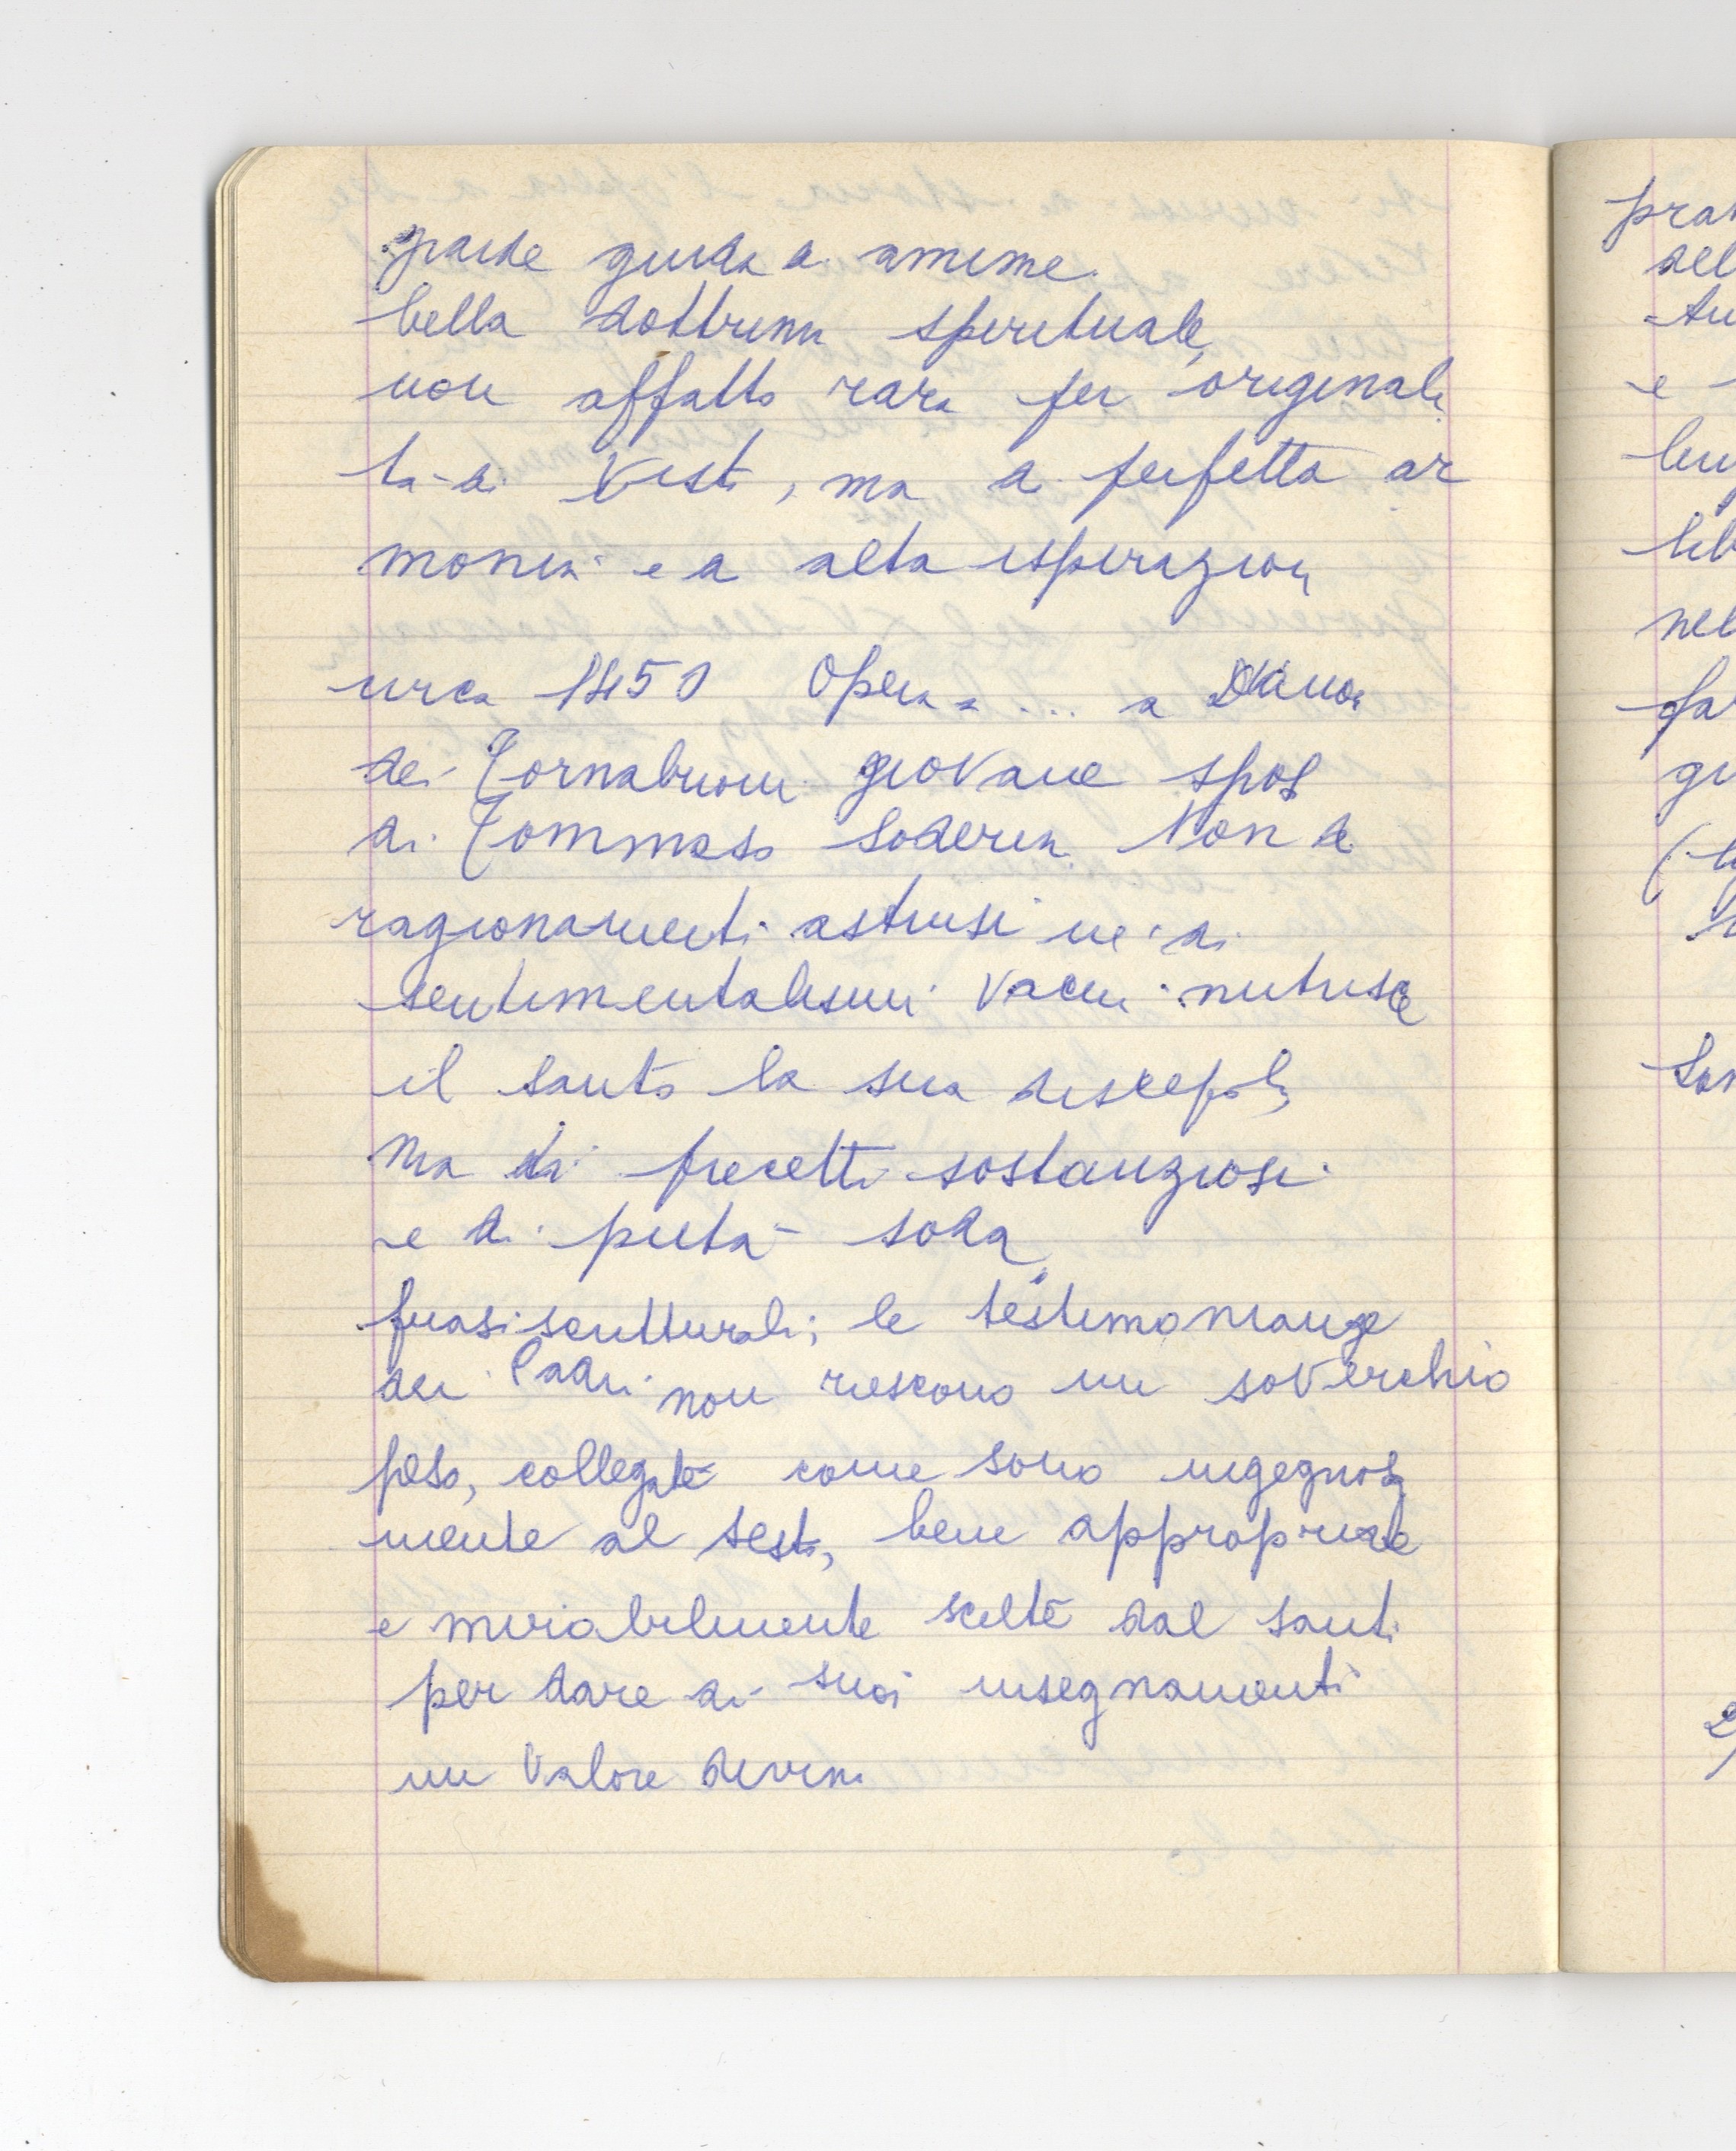 grande guida di anime.
bella dottrina spirituale,
non affatto rara per originali
tà di visti, ma di perfetta ar
monia e di alta ispirazion
circa 1450 Opera a ... a Dianora
dei Tornabuoni giovane sposa
di Tommaso Soderini Non di
ragionamenti astrusi nei di
sentimentalismi vacui nutrisce
il santo la sua discepola,
ma di precetti sostanziosi
e di pietà soda
frasi scritturali; le testimonianze
dei Padri non riescono un soverchio
peso, collegate come sono ingegnosa
mente al testo, bene appropriate
e mirabilmente scelte dal santo
per dare ai suoi insegnamenti
un valore divino
prat
del
e
nel
far
gi
San